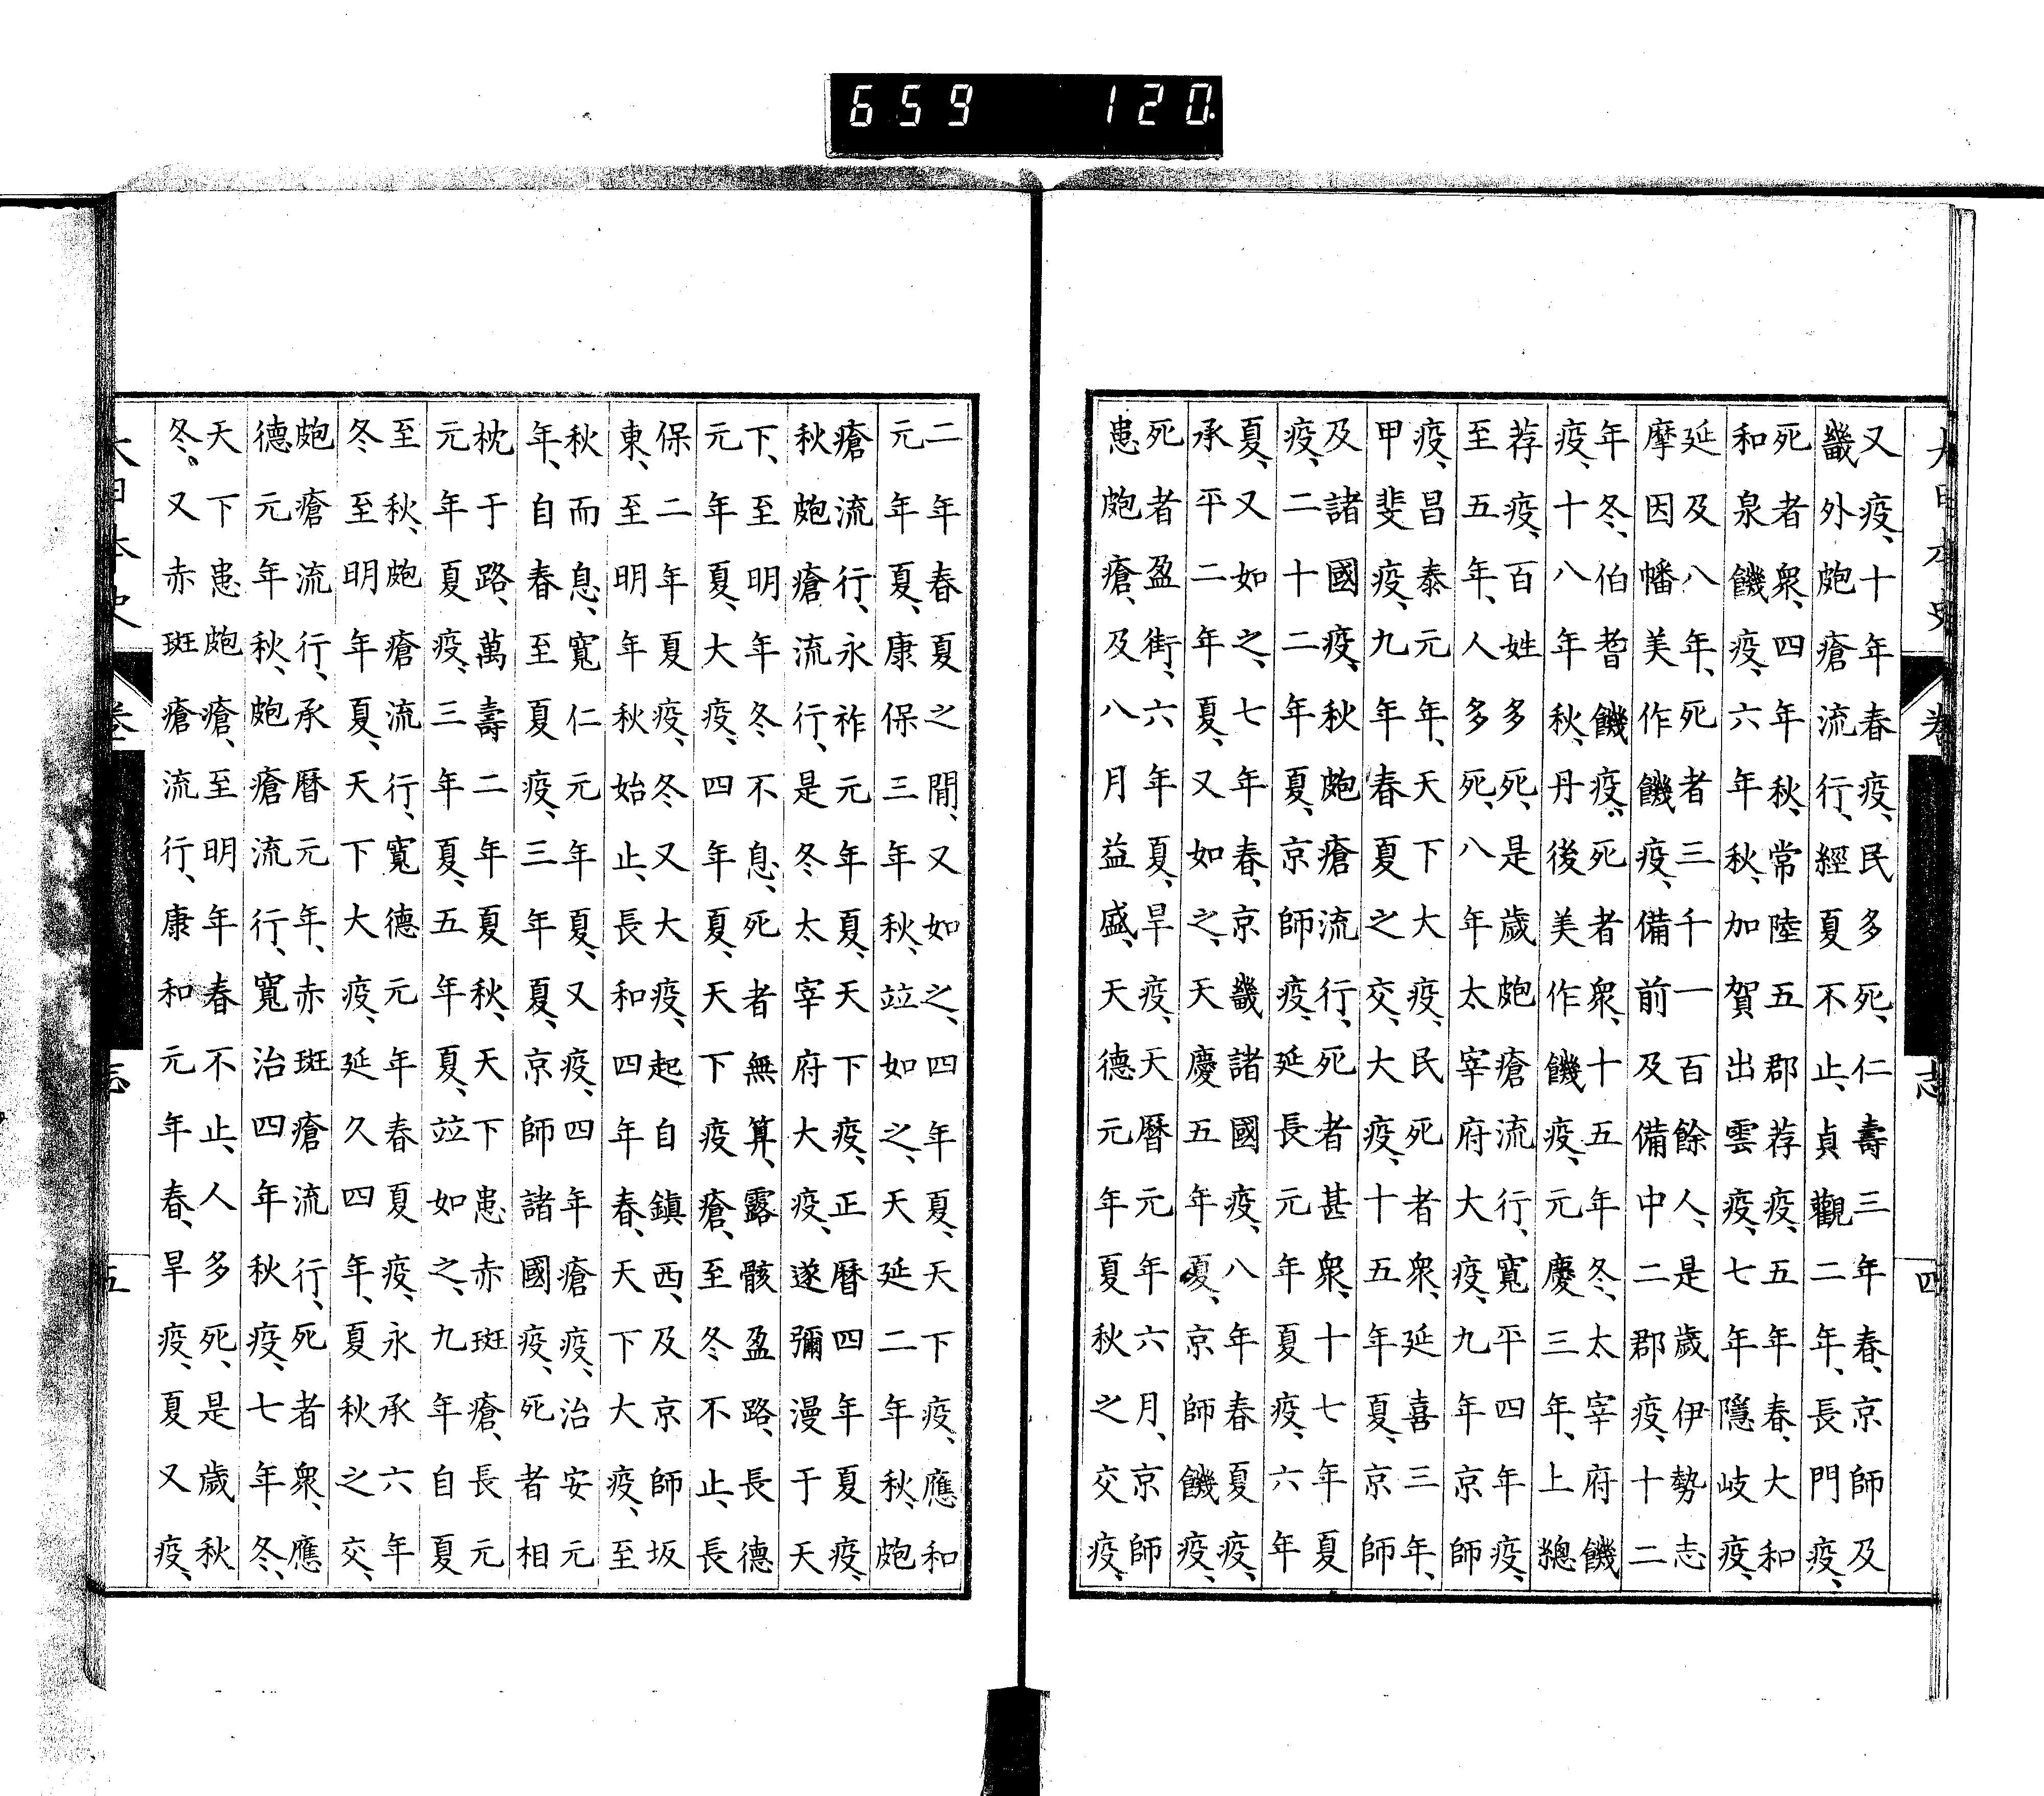 大日本史　卷　志　四
又疫、十年春疫、民多死、仁壽三年春、京師及
畿外皰瘡流行、經夏不止、貞觀二年、長門疫、
死者衆、四年秋、常陸五郡荐疫、五年春、大和
和泉饑疫、六年秋、加賀出雲疫、七年隱岐疫、
延及八年、死者三千一百餘人、是歲伊勢志
摩因幡美作饑疫、備前及備中二郡疫、十二
年冬、伯耆饑疫、死者衆、十五年冬、太宰府饑
疫、十八年秋、丹後美作饑疫、元慶三年、上總
荐疫、百姓多死、是歲皰瘡流行、寬平四年疫、
至五年、人多死、八年太宰府大疫、九年京師
疫、昌泰元年、天下大疫、民死者衆、延喜三年、
甲斐疫、九年春夏之交、大疫、十五年夏、京師
及諸國疫、秋皰瘡流行、死者甚衆、十七年夏
疫、二十二年夏、京師疫、延長元年夏疫、六年
夏、又如之、七年春、京畿諸國疫、八年春夏疫、
承平二年夏、又如之、天慶五年夏、京師饑疫、
死者盈街、六年夏、旱疫、天曆元年六月、京師
患皰瘡、及八月益盛、天德元年夏秋之交疫、
二年春夏之間、又如之、四年夏、天下疫、應和
元年夏、康保三年秋、竝如之、天延二年秋、皰
瘡流行、永祚元年夏、天下疫、正曆四年夏疫、
秋皰瘡流行、是冬太宰府大疫、遂彌漫于天
下、至明年冬不息、死者無算、露骸盈路、長德
元年夏、大疫、四年夏、天下疫瘡、至冬不止、長
保二年夏疫、冬又大疫、起自鎮西、及京師坂
東、至明年秋始止、長和四年春、天下大疫、至
秋而息、寬仁元年夏、又疫、四年瘡疫、治安元
年、自春至夏疫、三年夏、京師諸國疫、死者相
枕于路、萬壽二年夏秋、天下患赤斑瘡、長元
元年夏疫、三年夏、五年夏、竝如之、九年自夏
至秋、皰瘡流行、寬德元年春夏疫、永承六年
冬至明年夏、天下大疫、延久四年、夏秋之交、
皰瘡流行、承曆元年、赤斑瘡流行、死者衆、應
德元年秋、皰瘡流行、寬治四年秋疫、七年冬、
天下患皰瘡、至明年春不止、人多死、是歲秋
冬。又赤斑瘡流行、康和元年春、旱疫、夏又疫、
大日本史　卷　志　五
659　120